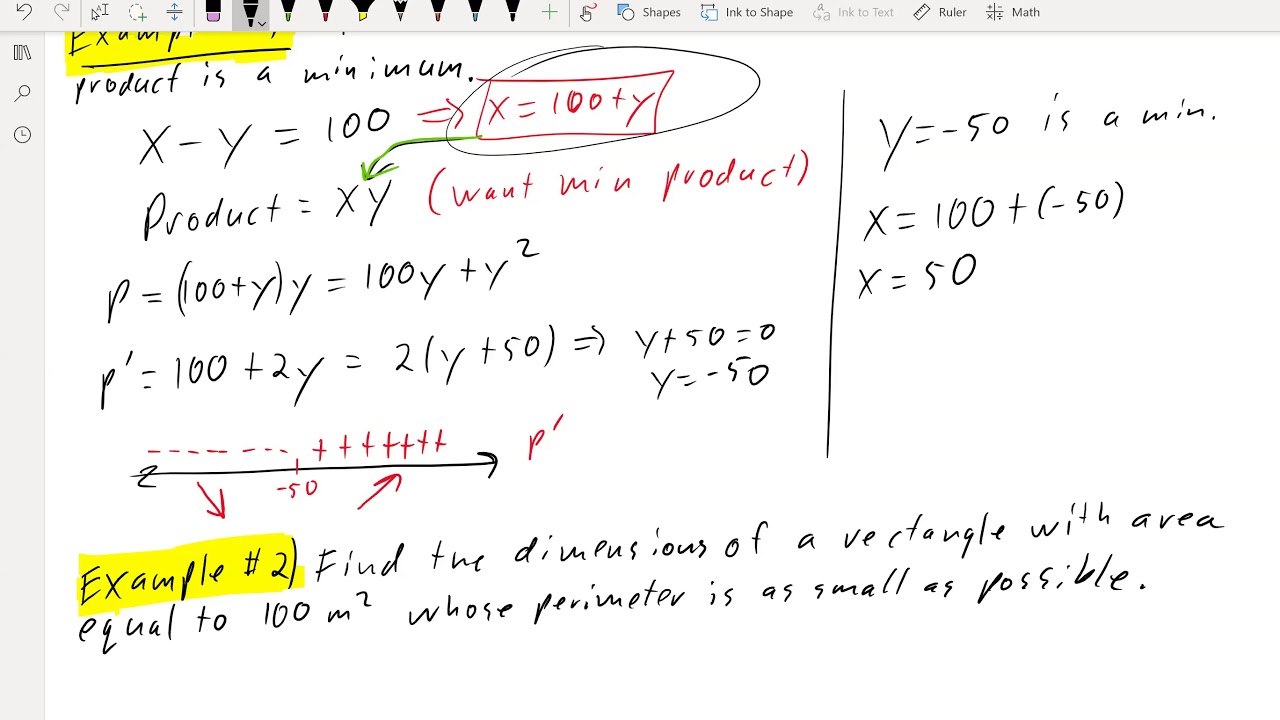 Shapes Ink to Shape Ink to Text Ruler Math
Exampl
product is a minimum.
X - Y = 100 => X = 100 + y
Product = XY (want min product)
P = (100+y)y = 100y + y²
P' = 100 + 2y = 2(y + 50) => y + 50 = 0
y = -50
- - - - - - - - + + + + + + + P'
-50
Y = -50 is a min.
X = 100 + (-50)
X = 50
Example #2) Find the dimensions of a rectangle with area
equal to 100 m² whose perimeter is as small as possible.